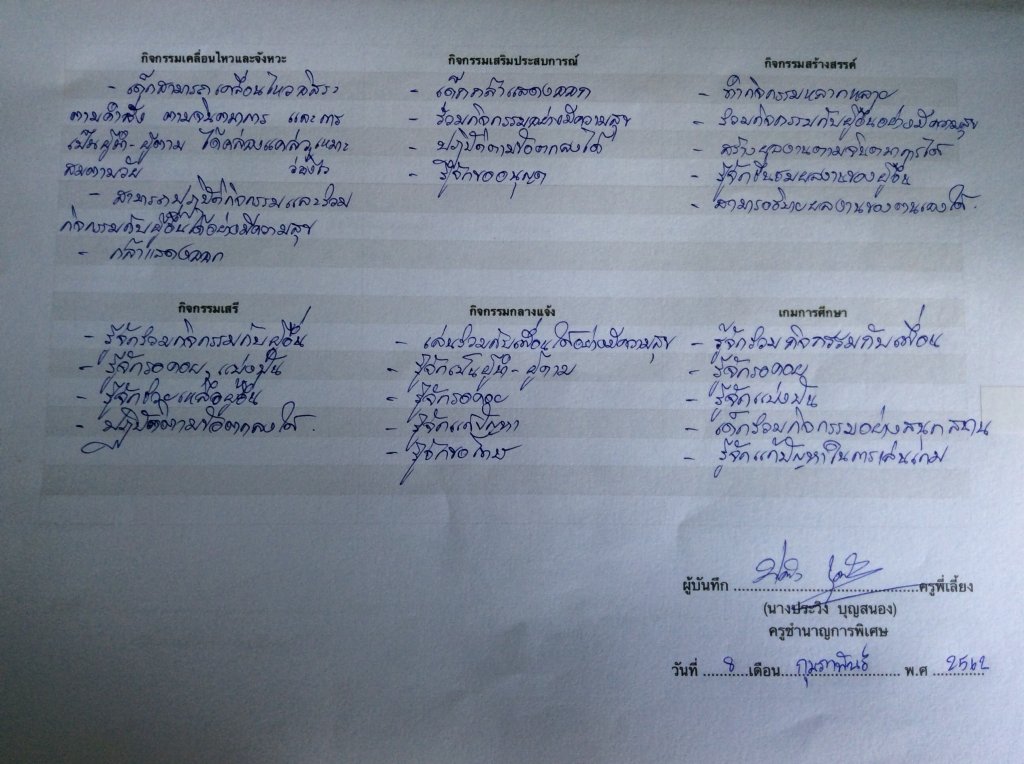 กิจกรรมเคลื่อนไหวและจังหวะ
- เด็กสามารถเคลื่อนไหวอิสระ
ตามคำสั่ง ตามจินตนาการ และการ
เป็นผู้นำ-ผู้ตาม ได้คล่องแคล่วเหมาะ
สมตามวัย ว่องไว
- สามารถปฏิบัติกิจกรรมและร่วม
กิจกรรมกับผู้อื่นได้อย่างมีความสุข
- กล้าแสดงออก
กิจกรรมเสริมประสบการณ์
- เด็กกล้าแสดงออก
- ร่วมกิจกรรมอย่างมีความสุข
- ปฏิบัติตามข้อตกลงได้
- รู้จักขออนุญาต
กิจกรรมสร้างสรรค์
- ทำกิจกรรมหลากหลาย
- ร่วมกิจกรรมกับผู้อื่นอย่างมีความสุข
- สร้างผลงานตามจินตนาการได้
- รู้จักชื่นชมผลงานของผู้อื่น
- สามารถอธิบายผลงานของตนเองได้.
กิจกรรมเสรี
- รู้จักร่วมกิจกรรมกับผู้อื่น
- รู้จักรอคอย, แบ่งปัน
- รู้จักช่วยเหลือผู้อื่น
- ปฏิบัติตามข้อตกลงได้.
กิจกรรมกลางแจ้ง
- เล่นร่วมกับเพื่อนได้อย่างมีความสุข
- รู้จักเป็นผู้นำ-ผู้ตาม
- รู้จักรอคอย
- รู้จักแก้ปัญหา
- รู้จักขอโทษ
เกมการศึกษา
- รู้จักร่วมกิจกรรมกับเพื่อน
- รู้จักรอคอย
- รู้จักแบ่งปัน
- เด็กร่วมกิจกรรมอย่างสนุกสนาน
- รู้จักแก้ปัญหาในการเล่นเกม
ผู้บันทึก ........................................ครูพี่เลี้ยง
(นางประวิง บุญสนอง)
ครูชำนาญการพิเศษ
วันที่ ....8....เดือน...กุมภาพันธ์... พ.ศ ..2562..